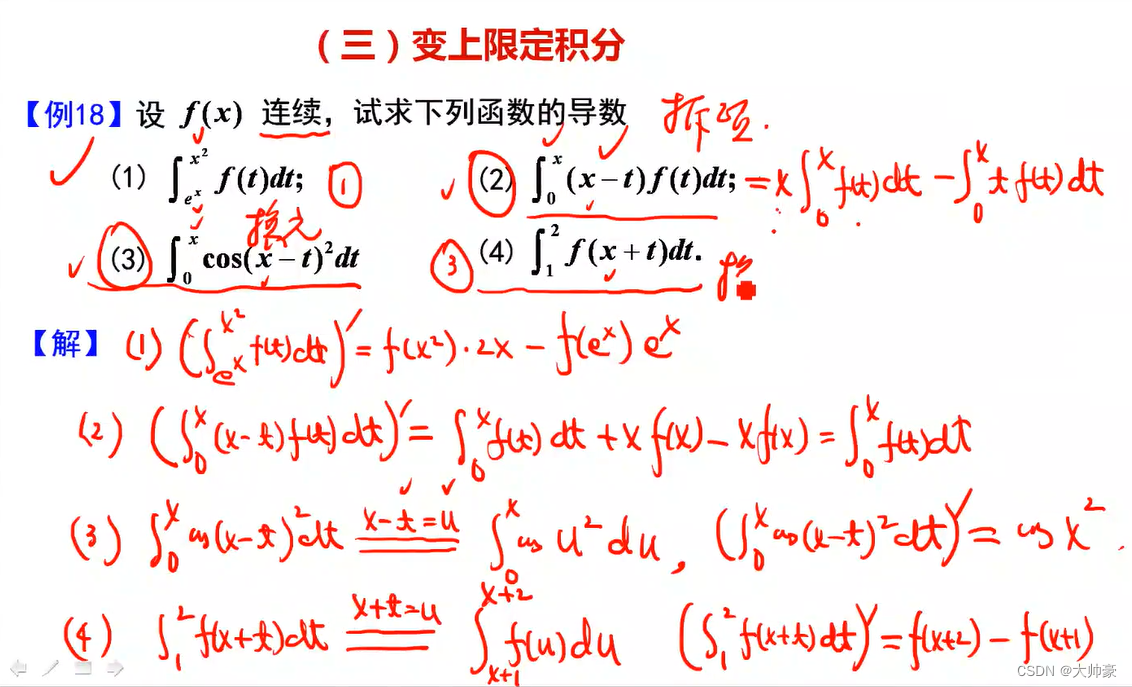 （三）变上限定积分
【例18】设 f(x) 连续，试求下列函数的导数 拆项.
(1) ∫_{e^x}^{x^2} f(t)dt; ① (2) ∫_0^x (x-t)f(t)dt; = x∫_0^x f(t)dt - ∫_0^x t f(t)dt
换元
(3) ∫_0^x cos(x-t)^2dt ③ (4) ∫_1^2 f(x+t)dt.
【解】(1) (∫_{e^x}^{x^2} f(t)dt)' = f(x^2)·2x - f(e^x)e^x
(2) (∫_0^x (x-t)f(t)dt)' = ∫_0^x f(t)dt + xf(x) - xf(x) = ∫_0^x f(t)dt
(3) ∫_0^x cos(x-t)^2dt x-t=u ∫_0^x cos u^2 du, (∫_0^x cos(x-t)^2dt)' = cos x^2.
(4) ∫_1^2 f(x+t)dt x+t=u ∫_{x+1}^{x+2} f(u)du (∫_1^2 f(x+t)dt)' = f(x+2) - f(x+1)
CSDN @大帅豪